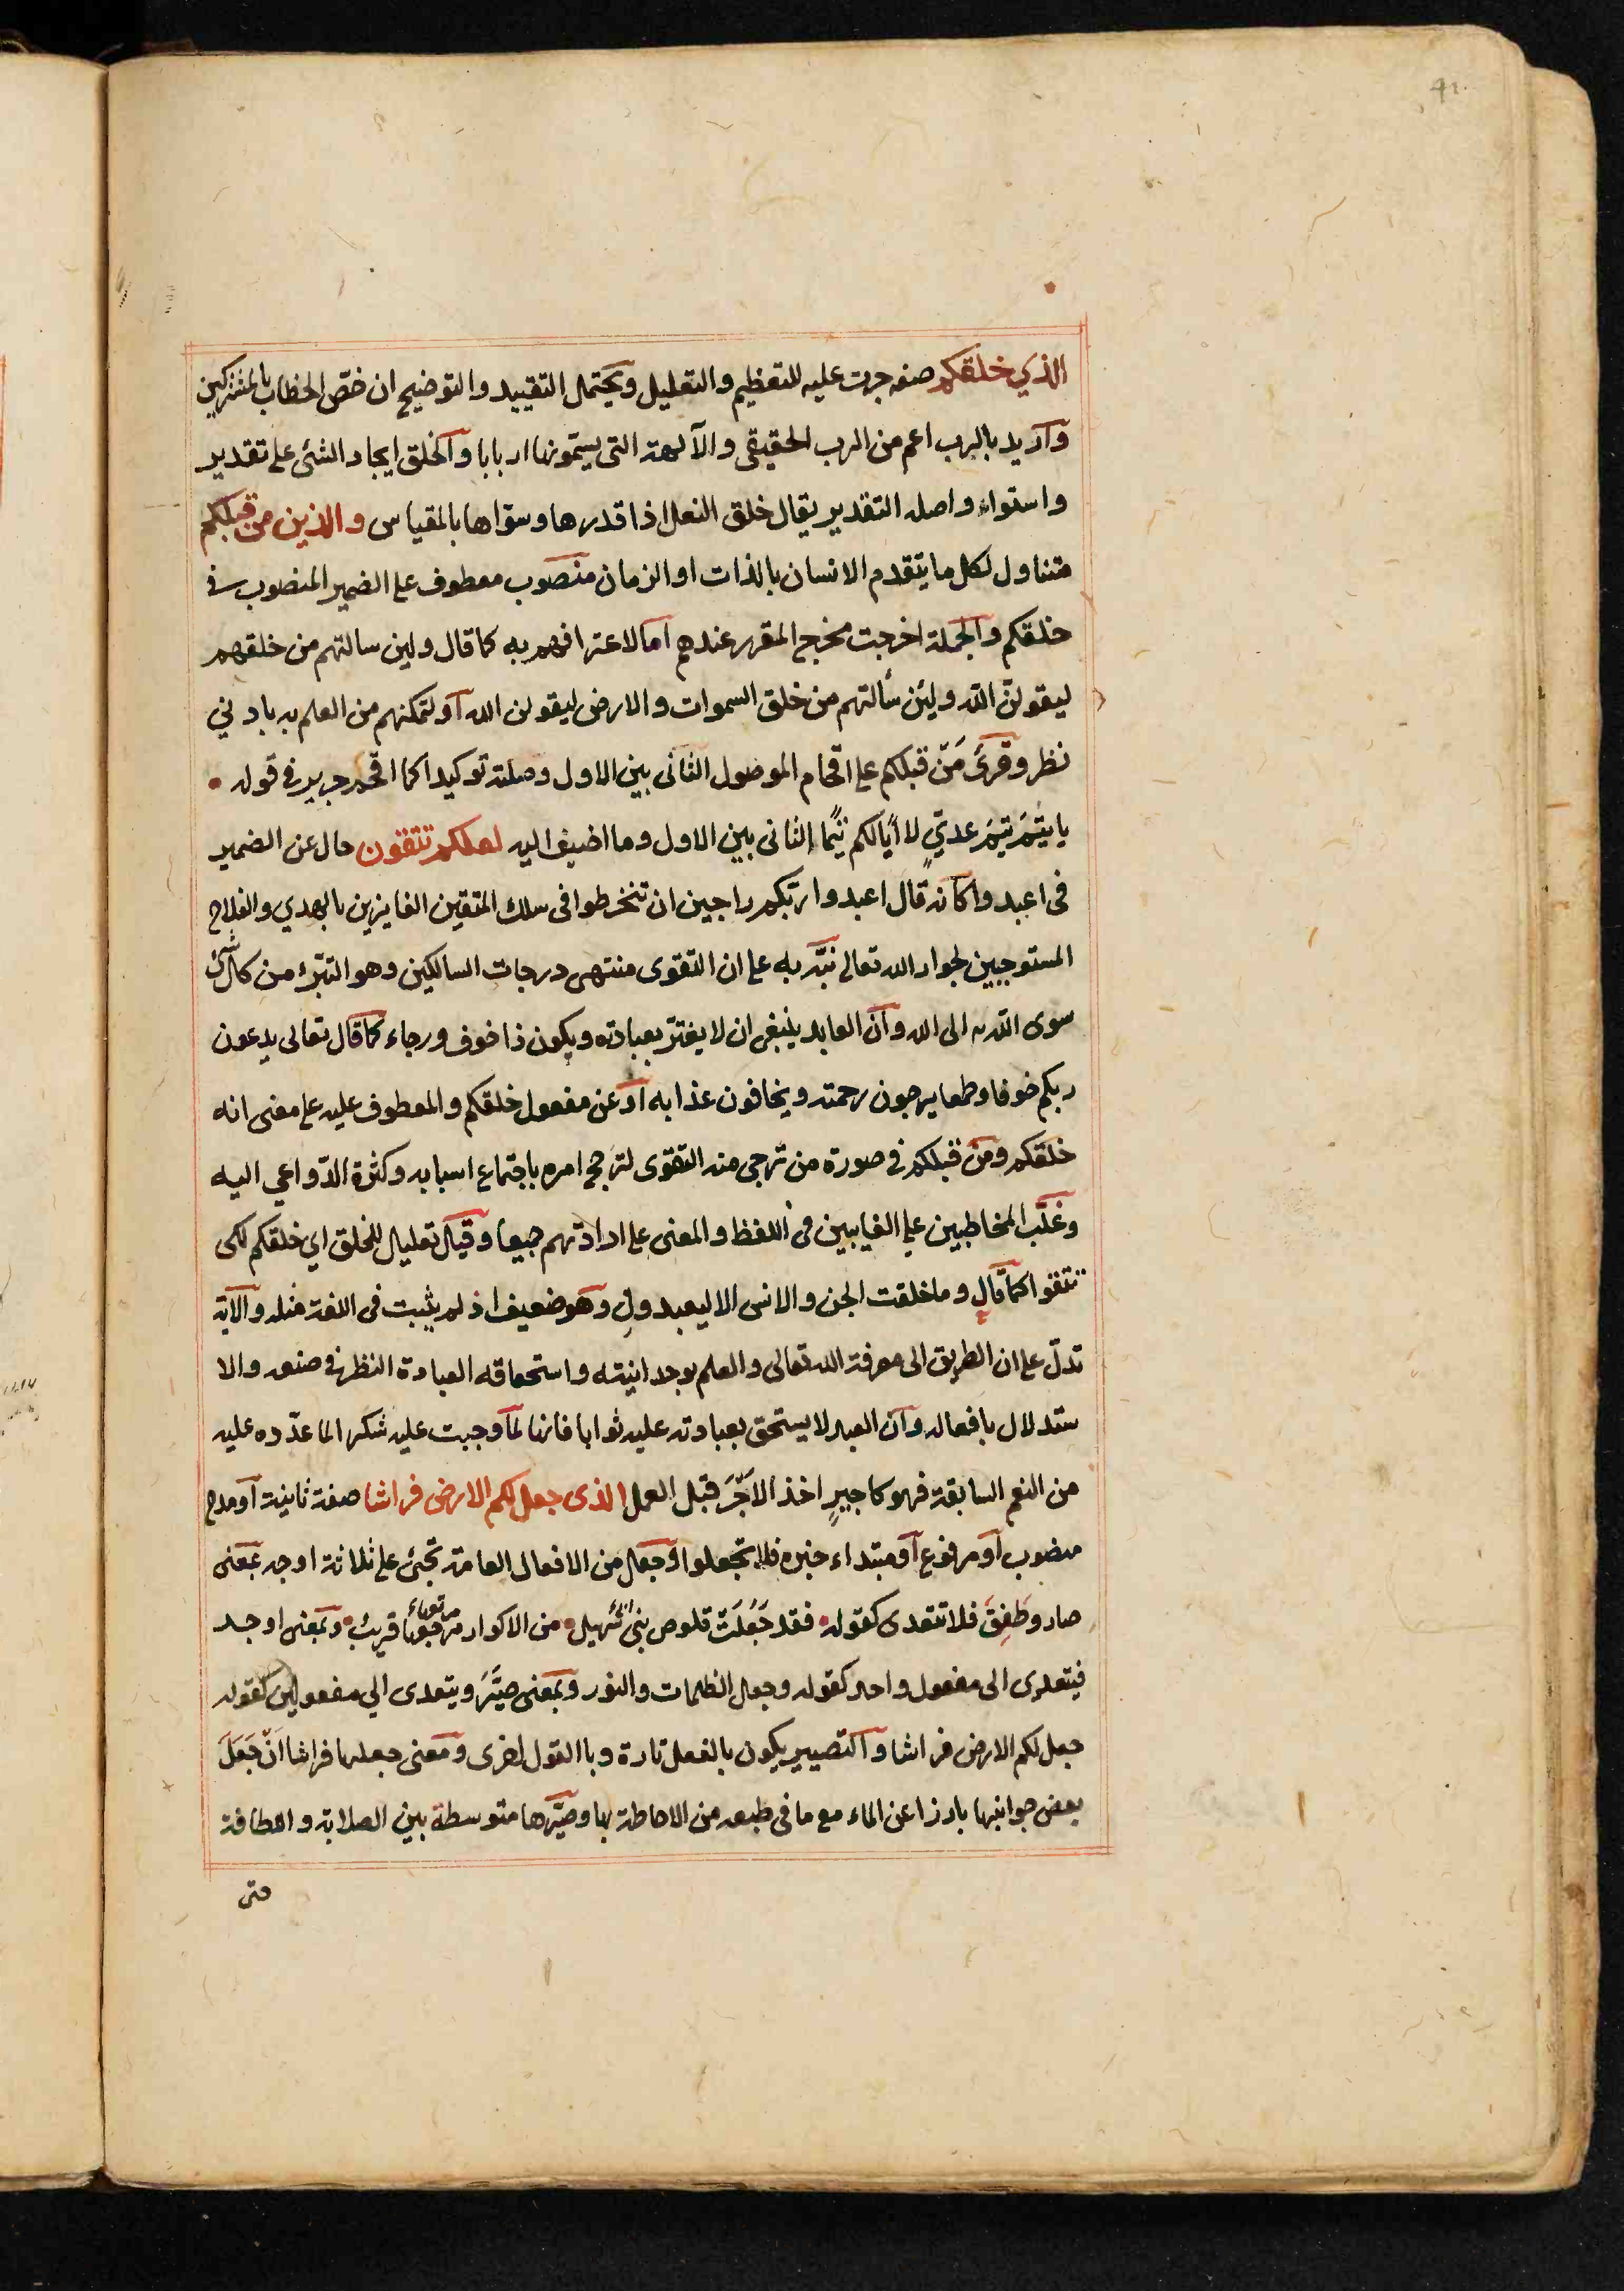 41
الذي خلقكم صفة جرت عليه للتعظيم والتعليل ويحتمل التقييد والتوضيح ان خصّ الخطاب بالمشركين
واريد بالرب اعم من الرب الحقيقي والآلهة التي يسمّونها اربابا والخلق ايجاد الشئ على تقدير
واستواء واصله التقدير يقال خلق النعل اذا قدرها وسوّاها بالمقياس والذين من قبلكم
متناول لكل ما يتقدم الانسان بالذات او الزمان منصوب معطوف على الضمير المنصوب في
خلقكم والجملة اخرجت مخرج المقرر عندهم اما لاعترافهم به كما قال ولين سالتهم من خلقهم
ليقولنّ الله ولئن سألتهم من خلق السموات والارض ليقولن الله او لتمكنهم من العلم به بادني
نظر وقرئ مَنْ قبلكم على اقحام الموصول الثانى بين الاول وصلته توكيدا كما اقحم جرير في قوله
يا تيمَ تيمَ عديٍّ لا أبا لكم تيمًا الثانى بين الاول وما اضيف اليه لعلكم تتقون حال عن الضمير
فى اعبدوا كانه قال اعبدوا ربّكم راجين ان تنخرطوا فى سلك المتقين الفايزين بالهدي والفلاح
المستوجبين لجوار الله تعالى نبّه به على ان التقوى منتهى درجات السالكين وهو التبرّء من كل شئ
سوى الله الى الله وان العابد ينبغى ان لا يغترّ بعبادته ويكون ذا خوف ورجاء كما قال تعالى يدعون
ربكم خوفا وطمعا يرجون رحمته ويخافون عذابه او عن مفعول خلقكم والمعطوف عليه على معنى انه
خلقكم ومن قبلكم في صورة من ترجى منه التقوى لترجح امره باجتماع اسبابه وكثرة الدّواعي اليه
وغلّب المخاطبين على الغايبين فى اللفظ والمعنى على ارادتهم جميعا وقيل تعليل للخلق اي خلقكم لكى
تتقوا كما قال وما خلقت الجن والانس الا ليعبدونِ وهو ضعيف اذ لم يثبت فى اللغة مثله والآية
تدلّ على ان الطريق الى معرفة الله تعالى والعلم بوحدانيته واستحقاقه العبادة النظر في صنعه والا
ستدلال بافعاله وان العبد لا يستحق بعبادته عليه ثوابا فانها لما وجبت عليه شكرا لما عدّده عليه
من النعم السابقة فهو كاجيرٍ اخذ الاجْرَ قبل العمل الذى جعل لكم الارض فراشا صفة ثانية او مدح
منصوب او مرفوع او مبتداء خبره فلا تجعلوا وجعل من الافعال العامة تجئ على ثلاثة اوجه بمعنى
صار وطَفِقَ فلا تتعدى كقوله فقد جَعَلَتْ قلوص بنى سهيل من الاكوار مرتعها قريب وبمعنى اوجد
فيتعدى الى مفعول واحد كقوله وجعل الظلمات والنور وبمعنى صيَّرَ ويتعدى الي مفعولين كقوله
جعل لكم الارض فراشا والتصيير يكون بالفعل تارة وبا القول اخرى ومعنى جعلها فراشا انّ جَعَلَ
بعض جوانبها بارزا عن الماء مع ما فى طبعه من الاحاطة بها وصيّرها متوسطة بين الصلابة واللطافة
حتى